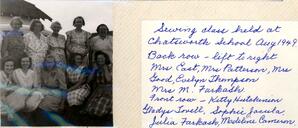 Sewing class held at
Chatsworth School Aug 1949
Back row - left to right
Mrs East, Mrs Patterson, Mrs
Good, Evelyn Thompson
Mrs M. Farkash
Front row - Kitty Hutchinson
Gladys Tovell, Sophie
Julia Farkash, Madeline Cameron